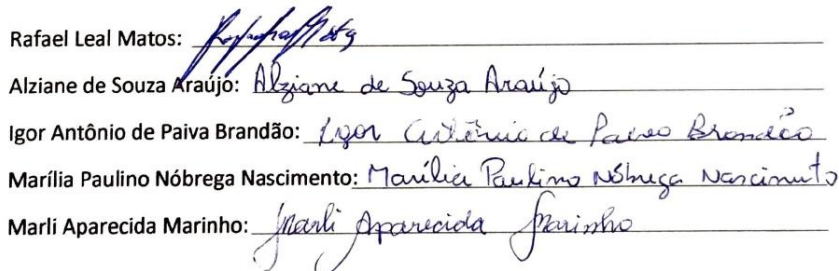 Rafael Leal Matos: Rafael Matos
Alziane de Souza Araújo: Alziane de Souza Araújo
Igor Antônio de Paiva Brandão: Igor Antônio de Paiva Brandão
Marília Paulino Nóbrega Nascimento: Marília Paulino Nóbrega Nascimento
Marli Aparecida Marinho: Marli Aparecida Marinho